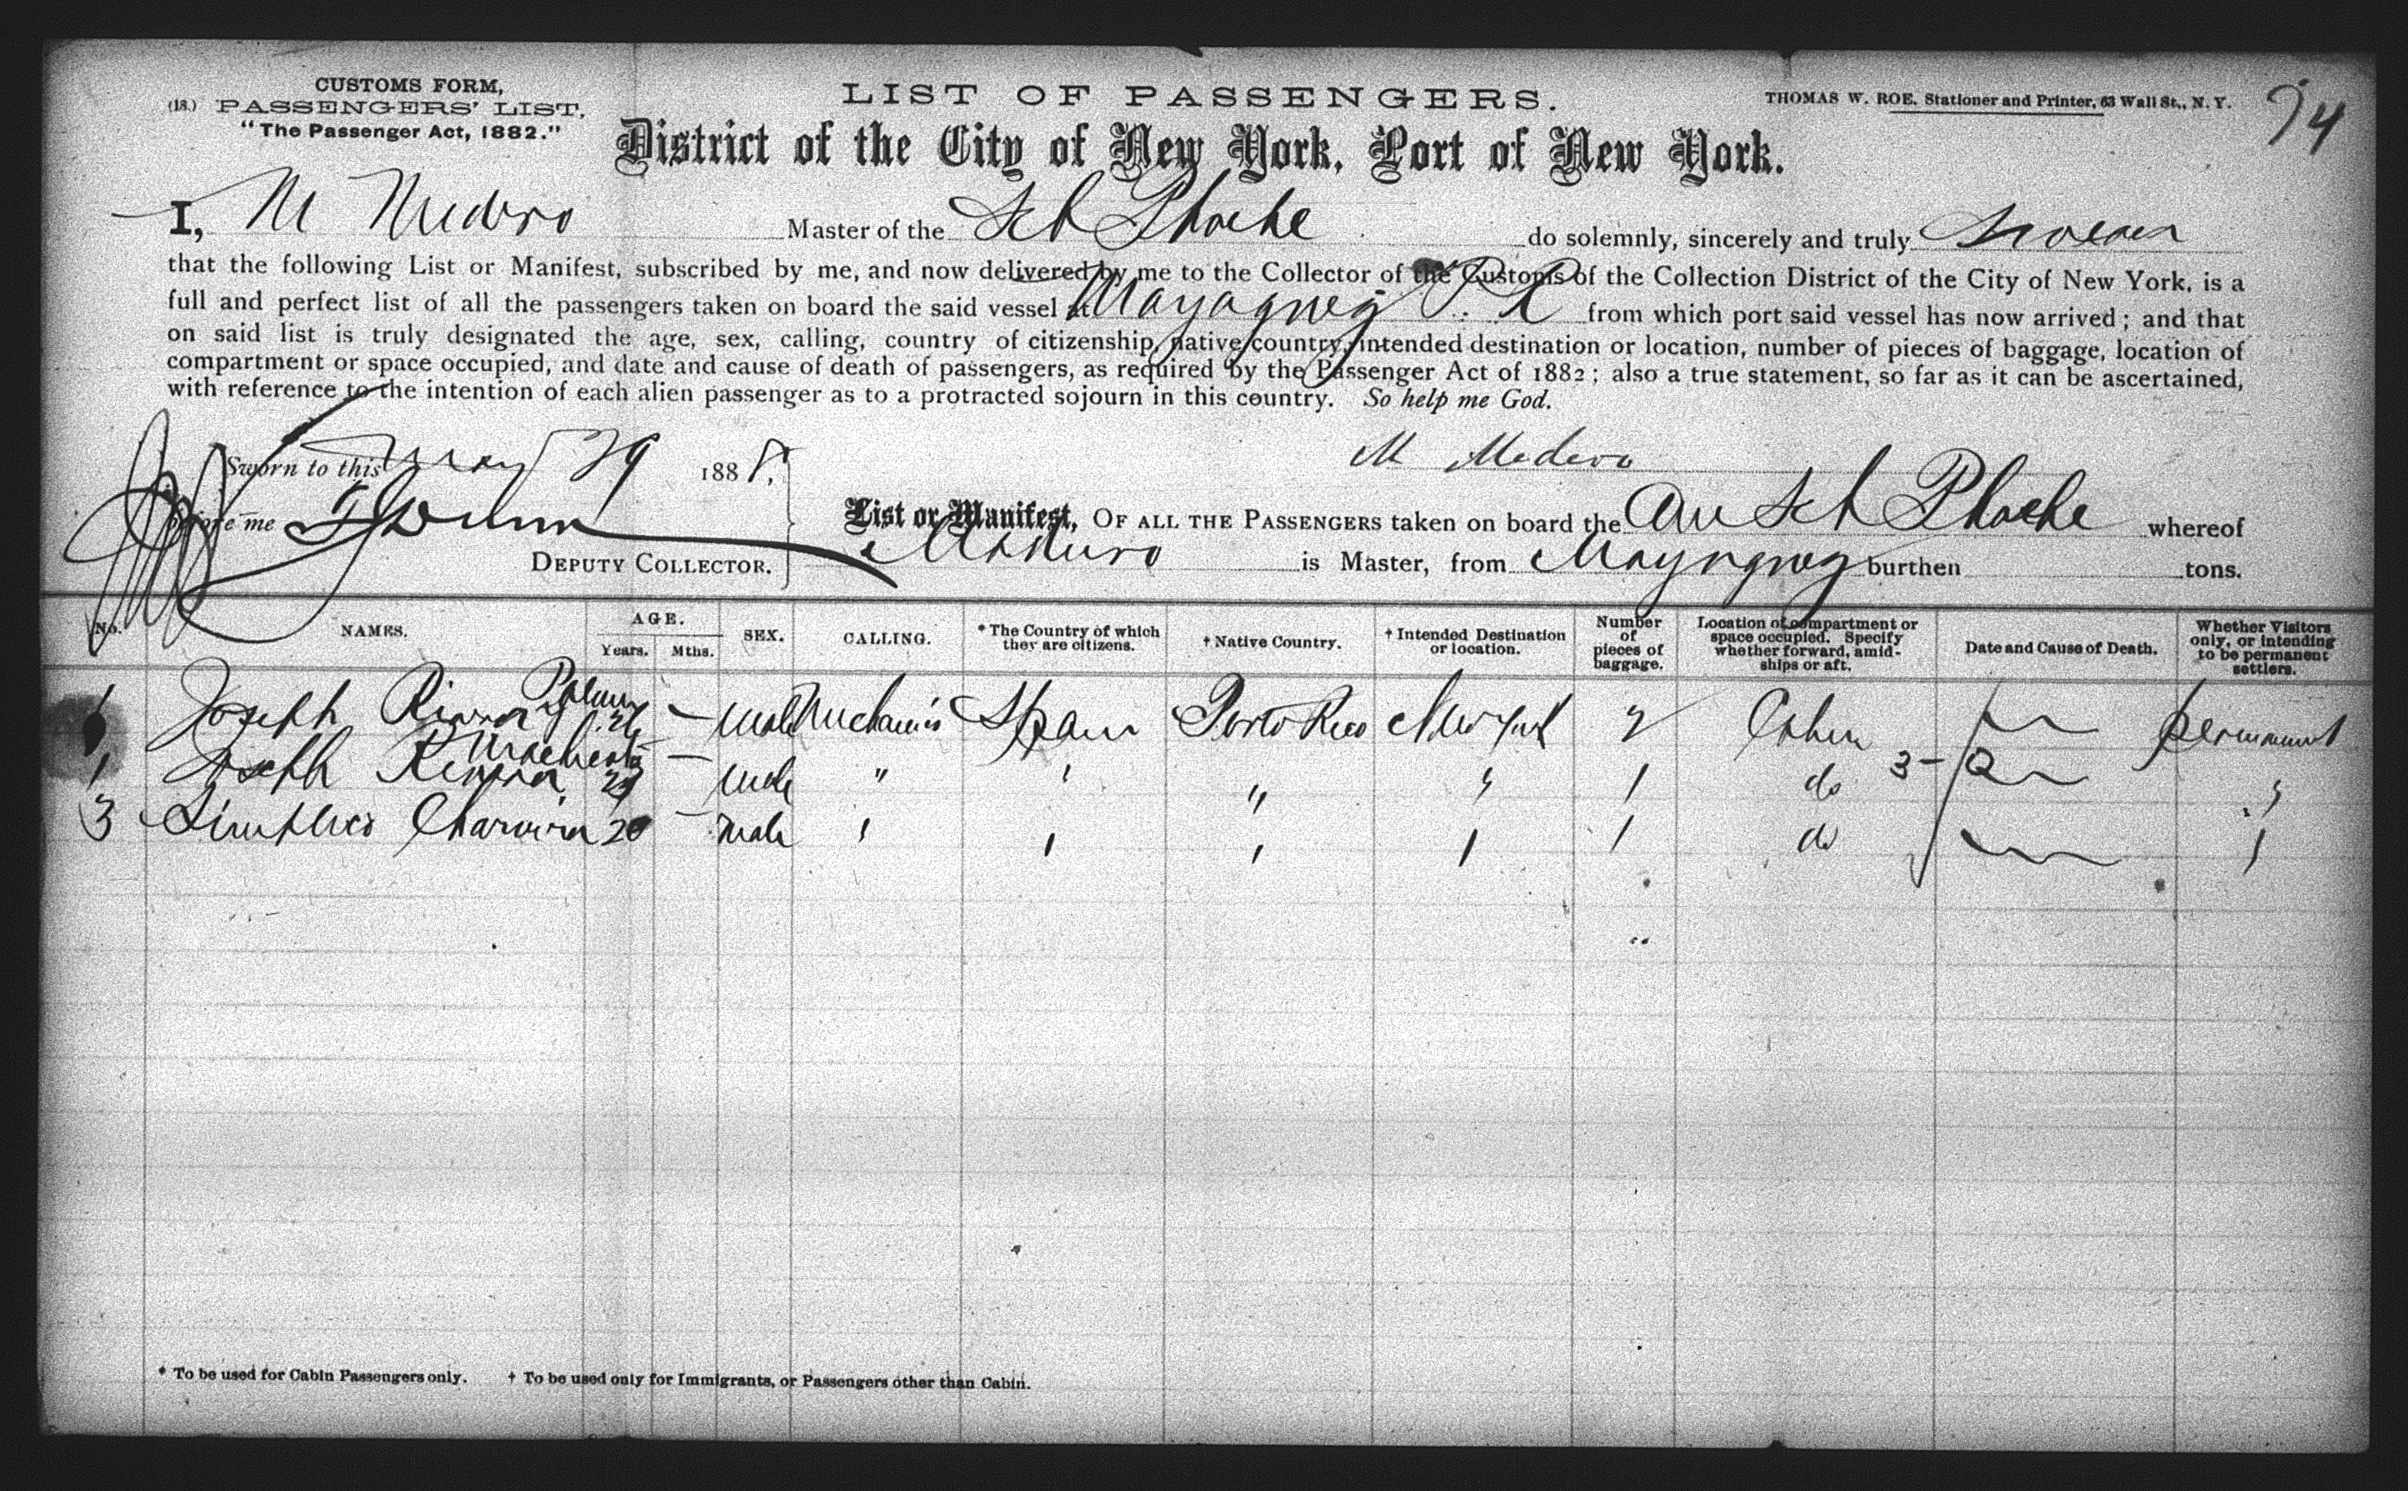 CUSTOMS FORM,
(18.) PASSENGERS' LIST.
"The Passenger Act, 1882."
LIST OF PASSENGERS.
THOMAS W. ROE. Stationer and Printer, 63 Wall St., N. Y.
District of the City of New York, Port of New York.
I, M Master of the Sch Phoebe do solemnly, sincerely and truly swear
that the following List or Manifest, subscribed by me, and now delivered by me to the Collector of the Customs of the Collection District of the City of New York, is a
full and perfect list of all the passengers taken on board the said vessel at Mayaguez P. R from which port said vessel has now arrived; and that
on said list is truly designated the age, sex, calling, country of citizenship, native country, intended destination or location, number of pieces of baggage, location of
compartment or space occupied, and date and cause of death of passengers, as required by the Passenger Act of 1882; also a true statement, so far as it can be ascertained,
with reference to the intention of each alien passenger as to a protracted sojourn in this country. So help me God.
Sworn to this May 29 1888,
M Medero
before me
DEPUTY COLLECTOR.
List or Manifest, OF ALL THE PASSENGERS taken on board the Am Sch Phoebe whereof
is Master, from Mayaguez burthen tons.
No. NAMES. AGE. Years. Mths. SEX. CALLING. * The Country of which they are citizens. † Native Country. † Intended Destination or location. Number of pieces of baggage. Location of compartment or space occupied. Specify whether forward, amidships or aft. Date and Cause of Death. Whether Visitors only, or intending to be permanent settlers.
1 Joseph Rivera 26 — male Mechanic Spain Porto Rico New York 2 Cabin permanent
Joseph Rivera — male " ' " " 1 do "
3 Simplicio 20 — male ' ' ' ' 1 do '
* To be used for Cabin Passengers only. † To be used only for Immigrants, or Passengers other than Cabin.